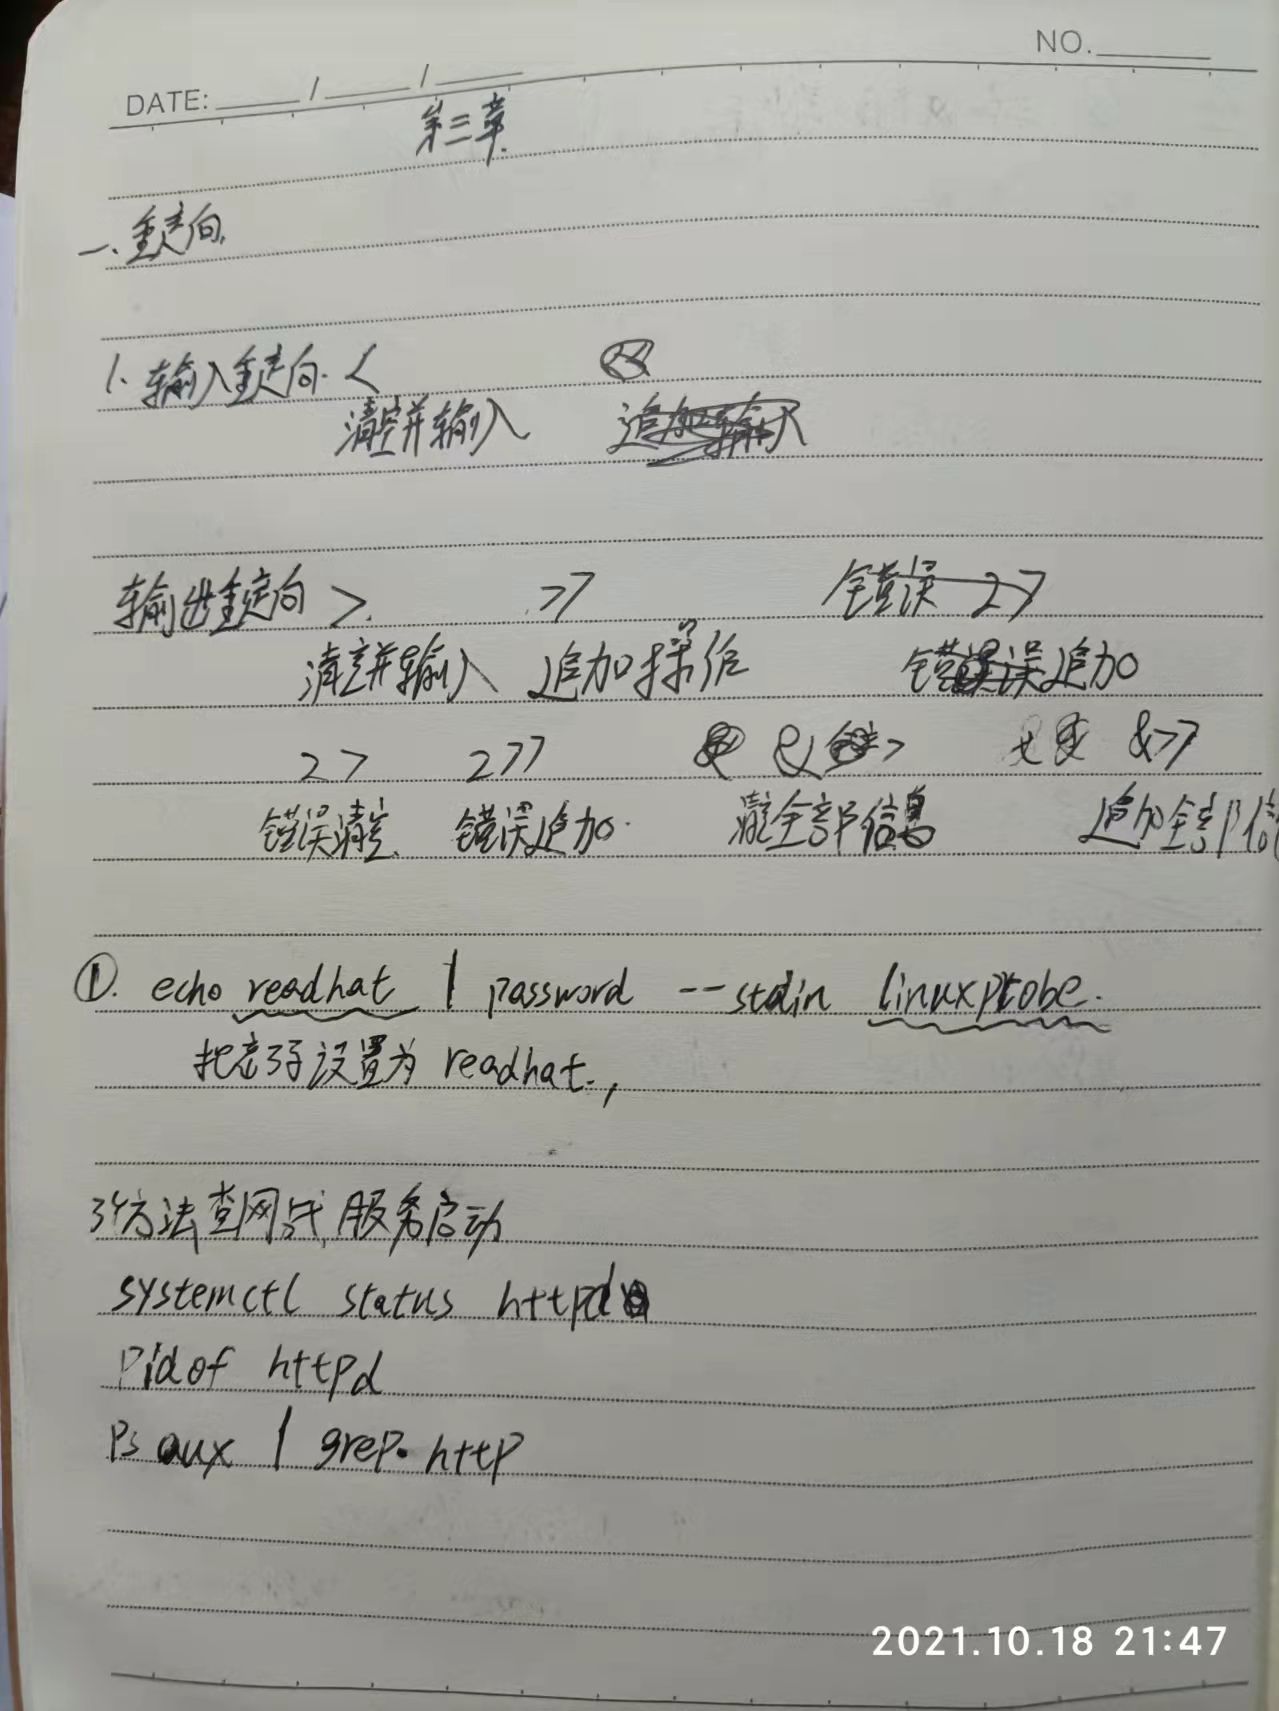 NO.
DATE: / /
第三章
一、重定向
1. 输入重定向. <
清空并输入
输出重定向 > >> 错误 2>
清空并输入 追加操作 错误追加
2> 2>> & > &>>
错误清空 错误追加. 清空全部信息 追加全部信
①. echo readhat | password --stdin linuxprobe.
把密码设置为 readhat.,
3个方法查网卡 服务启动
systemctl status httpd
Pidof httpd
Ps aux | grep. http
2021.10.18 21:47